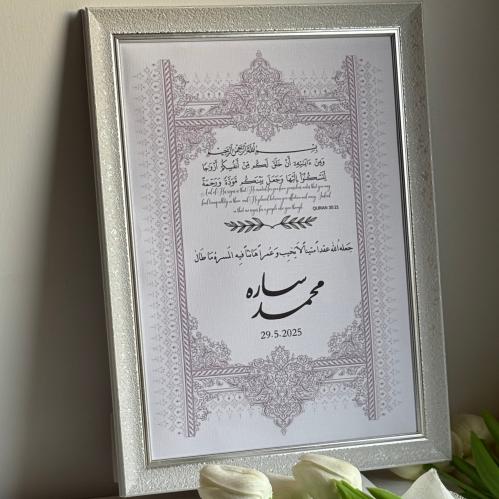 بسم الله الرحمن الرحيم
وَمِنْ ءَايَٰتِهِۦٓ أَنْ خَلَقَ لَكُم مِّنْ أَنفُسِكُمْ أَزْوَٰجًا
لِّتَسْكُنُوٓا۟ إِلَيْهَا وَجَعَلَ بَيْنَكُم مَّوَدَّةً وَرَحْمَةً
And of His signs is that He created for you from yourselves mates that you may
find tranquillity in them and He placed between you affection and mercy. Indeed
in that are signs for a people who give thought
QURAN 30:21
جعله الله عقداً متيناً لا يخيب وعمراً هانئاً فيه المسره ما طال
ساره
محمد
29.5.2025